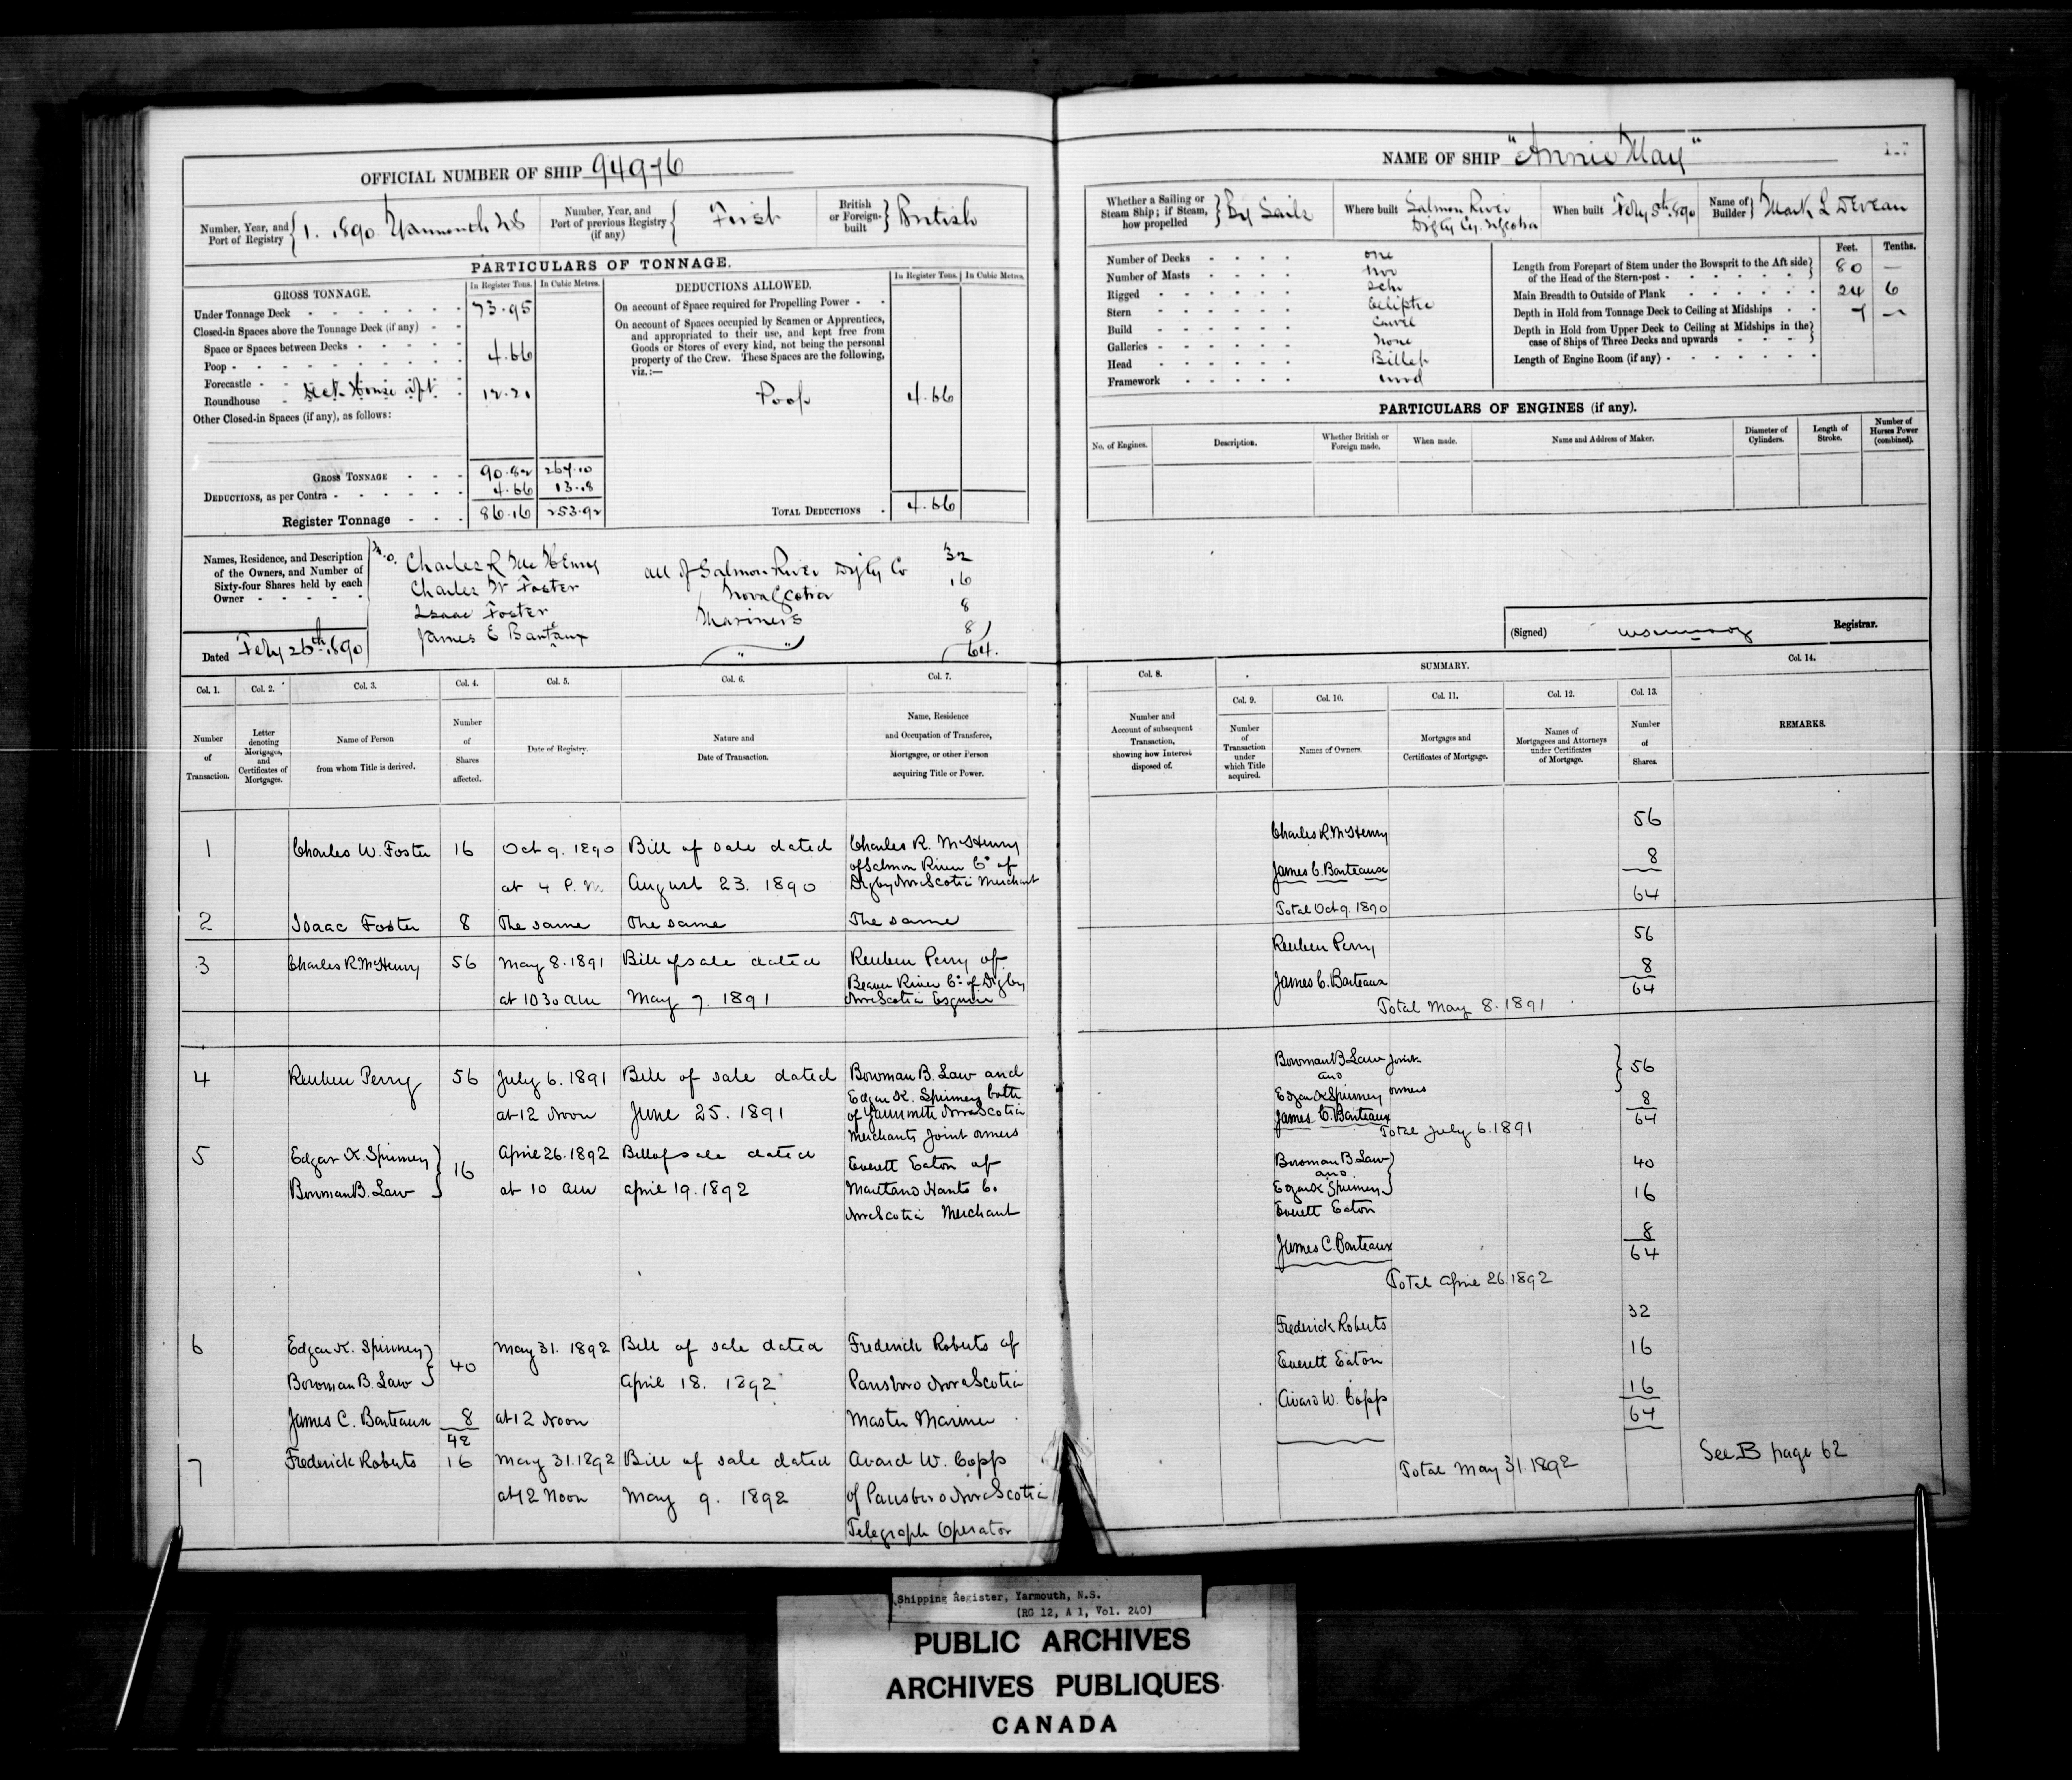 OFFICIAL NUMBER OF SHIP 94976
Number, Year, and Port of Registry { 1. 1890 Yarmouth NS
Number, Year, and Port of previous Registry (if any) { First
British or Foreign-built } British
PARTICULARS OF TONNAGE.
GROSS TONNAGE. In Register Tons. In Cubic Metres.
Under Tonnage Deck 73.95
Closed-in Spaces above the Tonnage Deck (if any)
Space or Spaces between Decks
Poop 4.66
Forecastle
Roundhouse Deck House aft 12.21
Other Closed-in Spaces (if any), as follows:
GROSS TONNAGE 90.82 267.00
DEDUCTIONS, as per Contra 4.66 13.08
Register Tonnage 86.16 253.92
DEDUCTIONS ALLOWED. In Register Tons. In Cubic Metres.
On account of Space required for Propelling Power
On account of Spaces occupied by Seamen or Apprentices,
and appropriated to their use, and kept free from
Goods or Stores of every kind, not being the personal
property of the Crew. These Spaces are the following,
viz.:—
Poop 4.66
TOTAL DEDUCTIONS 4.66
Names, Residence, and Description
of the Owners, and Number of
Sixty-four Shares held by each
Owner
Charles R McHenry 32
Charles W Foster 16
Isaac Foster 8
James E Banteaux 8
all of Salmon River Digby Co
Nova Scotia
Mariners
64.
Dated Feby 26th 1890
Col. 1. Col. 2. Col. 3. Col. 4. Col. 5. Col. 6. Col. 7.
Number of Transaction.
Letter denoting Mortgages, and Certificates of Mortgages.
Name of Person from whom Title is derived.
Number of Shares affected.
Date of Registry.
Nature and Date of Transaction.
Name, Residence and Occupation of Transferee, Mortgagee, or other Person acquiring Title or Power.
1 Charles W. Foster 16 Oct 9. 1890 Bill of sale dated Charles R. McHenry
of Salmon River Co of
at 4 P.M August 23. 1890 Digby Nova Scotia Merchant
2 Isaac Foster 8 The same The same The same
3 Charles R. McHenry 56 May 8. 1891 Bill of sale dated Reuben Perry of
Beaver River Co of Digby
at 10 30 am May 7. 1891 Nova Scotia Esquire
4 Reuben Perry 56 July 6. 1891 Bill of sale dated Bowman B. Law and
Edgar K. Spinney both
at 12 Noon June 25. 1891 of Yarmouth Nova Scotia
Merchants Joint owners
5 Edgar K. Spinney } 16 April 26. 1892 Bill of sale dated Everett Eaton of
Bowman B. Law at 10 am April 19. 1892 Maitland Hants Co.
Nova Scotia Merchant
6 Edgar K. Spinney } 40 May 31. 1892 Bill of sale dated Frederick Roberts of
Bowman B. Law April 18. 1892 Parrsboro Nova Scotia
James C. Banteaux 8 at 12 Noon Master Mariner
48
7 Frederick Roberts 16 May 31. 1892 Bill of sale dated Avard W. Copp
at 12 Noon May 9. 1892 of Parrsboro Nova Scotia
Telegraph Operator
NAME OF SHIP "Annie May"
Whether a Sailing or Steam Ship; if Steam, how propelled } By Sails
Where built Salmon River
Digby Cy. N Scotia
When built Feby 5th 1890
Name of Builder } Mark L Deveau
Number of Decks one
Number of Masts two
Rigged Schr
Stern Elliptic
Build Carvel
Galleries none
Head Billet
Framework wood
Feet. Tenths.
Length from Forepart of Stem under the Bowsprit to the Aft side
of the Head of the Stern-post 80 —
Main Breadth to Outside of Plank 24 6
Depth in Hold from Tonnage Deck to Ceiling at Midships 7 —
Depth in Hold from Upper Deck to Ceiling at Midships in the
case of Ships of Three Decks and upwards
Length of Engine Room (if any)
PARTICULARS OF ENGINES (if any).
No. of Engines. Description. Whether British or Foreign made. When made. Name and Address of Maker. Diameter of Cylinders. Length of Stroke. Number of Horses Power (combined).
(Signed) Registrar.
Col. 8. SUMMARY. Col. 14.
Col. 9. Col. 10. Col. 11. Col. 12. Col. 13.
Number and Account of subsequent Transaction, showing how Interest disposed of.
Number of Transaction under which Title acquired.
Names of Owners.
Mortgages and Certificates of Mortgage.
Names of Mortgagees and Attorneys under Certificates of Mortgage.
Number of Shares.
REMARKS.
Charles R. McHenry 56
James C. Banteaux 8
64
Total Oct 9. 1890
Reuben Perry 56
James C. Banteaux 8
64
Total May 8. 1891
Bowman B Law Joint } 56
and
Edgar K Spinney owners
James C. Banteaux 8
64
Total July 6. 1891
Bowman B Law } 40
and
Edgar K Spinney
Everett Eaton 16
James C. Banteaux 8
64
Total April 26. 1892
Frederick Roberts 32
Everett Eaton 16
Avard W. Copp 16
64
Total May 31. 1892
See B page 62
Shipping Register, Yarmouth, N.S.
(RG 12, A 1, Vol. 240)
PUBLIC ARCHIVES
ARCHIVES PUBLIQUES
CANADA